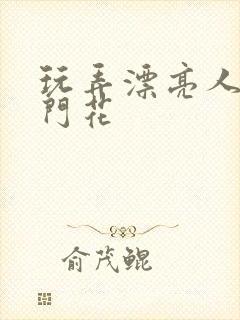 玩弄漂亮人
門花
俞茂鲲